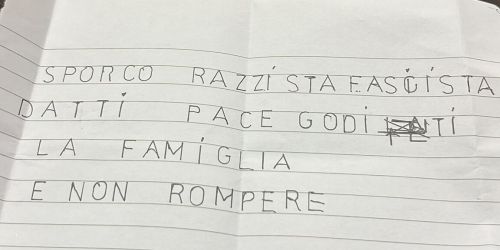 SPORCO RAZZiSTA FASCiSTA
DATTi PACE GODiTi
LA FAMiGLIA
E NON ROMPERE